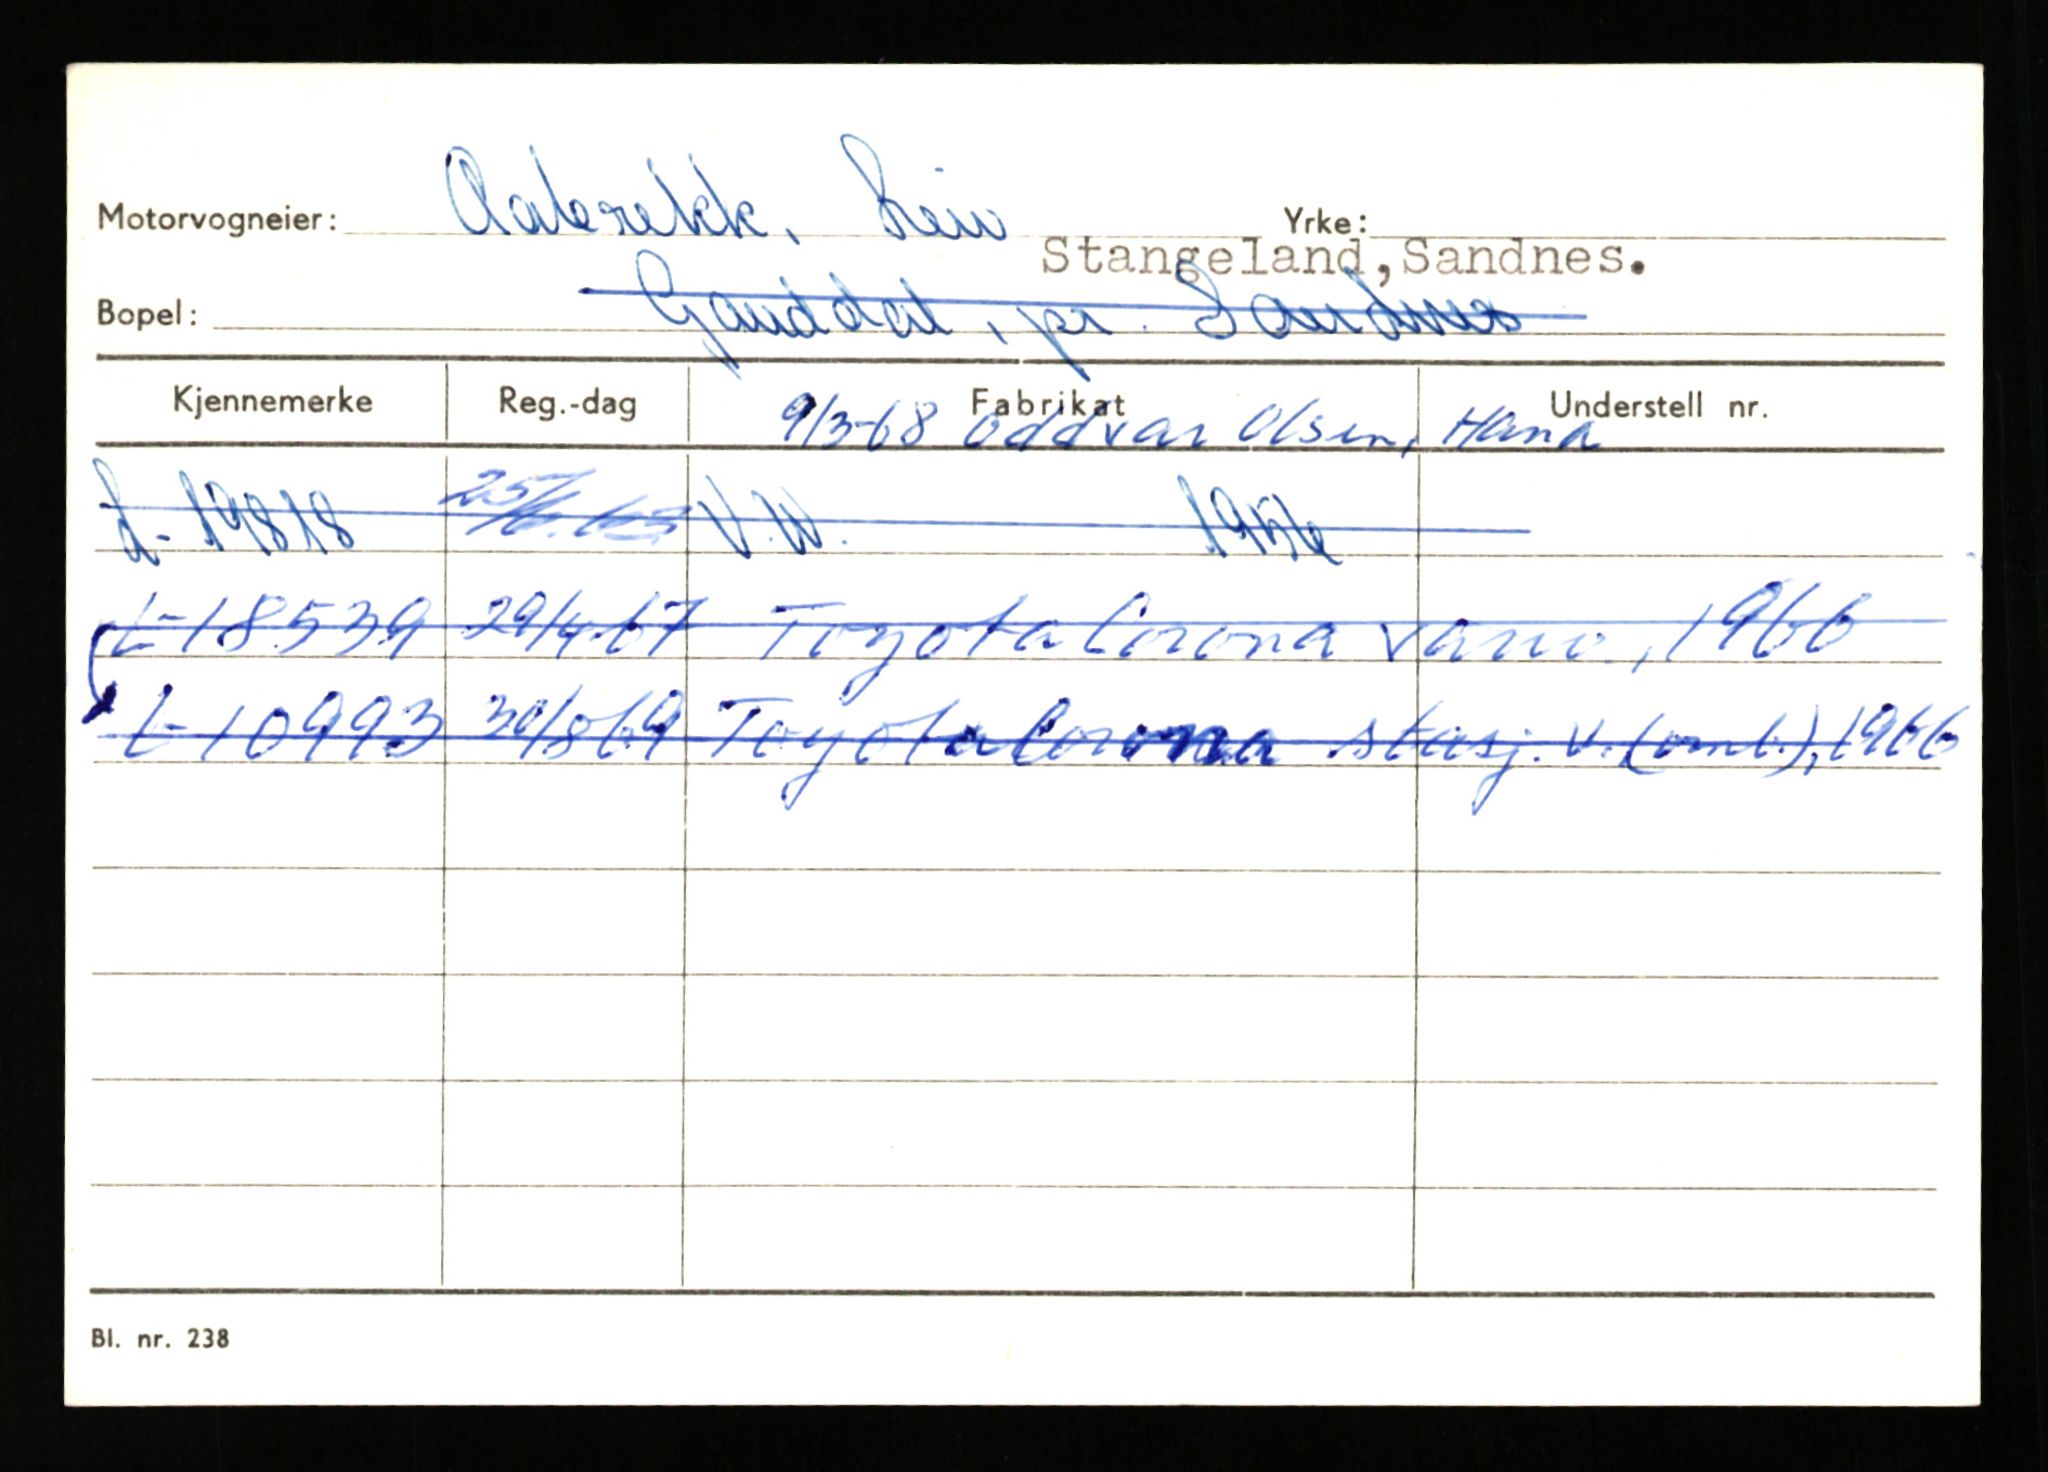 Motorvogneier: Aabrekk, Leiv Yrke:
Stangeland, Sandnes.
Bopel: Ganddal, pr. Sandnes
Kjennemerke Reg.-dag Fabrikat Understell nr.
9/3-68 Oddvar Olsen, Hana
L-19818 25/6.63 V.W. 1956
L-18539 29/4-67 Toyota Corona varev., 1966
L-10993 30/8 69 Toyota Corona stasj. v. (omb.), 1966
Bl. nr. 238